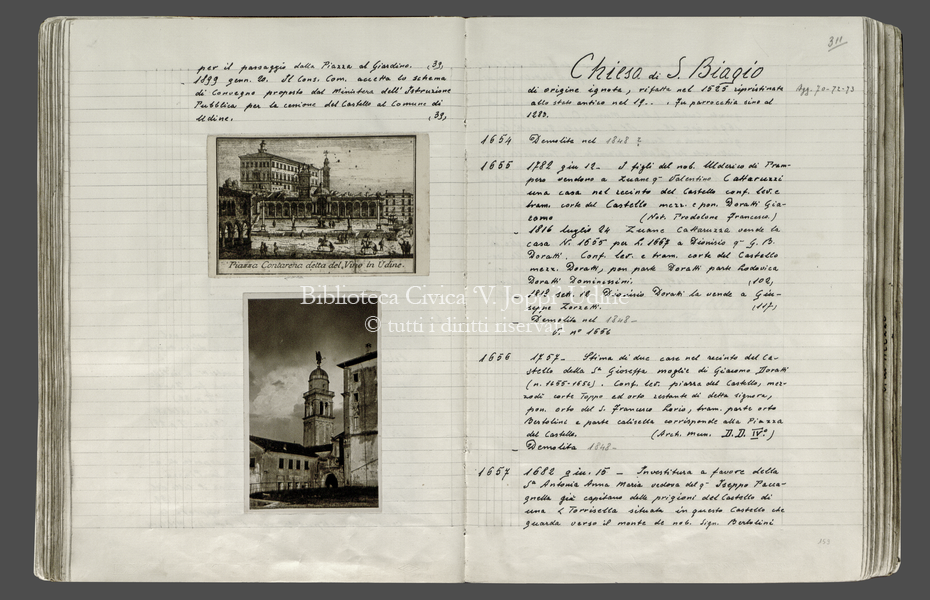 per il passaggio dalla Piazza al Giardino. (39,
- 1899 genn. 20. Il Cons. Com. accetta lo schema
di Convegno proposto dal Ministero dell' Istruzione
Pubblica per la cessione del Castello al Comune di
Udine. (39,
Piazza Contarena detta del Vino in Udine.
311
Chiesa di S. Biagio
di origine ignota, rifatta nel 1525 ripristinata
allo stato antico nel 19.. . Fu parrocchia sino al
1283.
Agg. 70-72-73
1654 Demolita nel 1848 ?
1655 1782 giu 12 - I figli del nob. Ulderico di Pram-
pero vendono a Zuane q. Valentino Cattaruzzi
una casa nel recinto del Castello conf. lev. e
tram. corte del Castello mezz. e pon. Doratti Gia-
como (Not. Prodolone Francesco.)
- 1816 luglio 24 Zuane Cattaruzza vende la
casa N. 1655 per L. 1667 a Dionisio q. G. B.
Doratti. Conf. lev. e tram. corte del Castello
mezz. Doratti, pon parte Doratti parte Lodovica
Doratti Domenissini. (102,
1819 set. 18 Dionisio Doratti la vende a Giu-
seppe Zorzetti. (117)
Demolita nel 1848-
V. n° 1656
1656 1757 - Stima di due case nel recinto del Ca-
stello della Sª Gioseffa moglie di Giacomo Doratti
(n. 1655-1656). Conf. lev. piazza del Castello, mez-
zodi corte Toppo ed orto restante di detta signora,
pon. orto del S. Francesco Lorio, tram. parte orto
Bertolini e parte calisella corrisponde alla Piazza
del Castello. (Arch. Mun. D.D. IV°)
- Demolita 1848-
1657 1682 giu. 15 - Investitura a favore della
Sª Antonia Anna Maria vedova del q. Iseppo Pacca-
gnella già capitano delle prigioni del Castello di
una Torrisella situata in questo Castello che
guarda verso il monte de nob. Sign. Bertolini
153
Biblioteca Civica 'V. Joppi' Udine
© tutti i diritti riservati